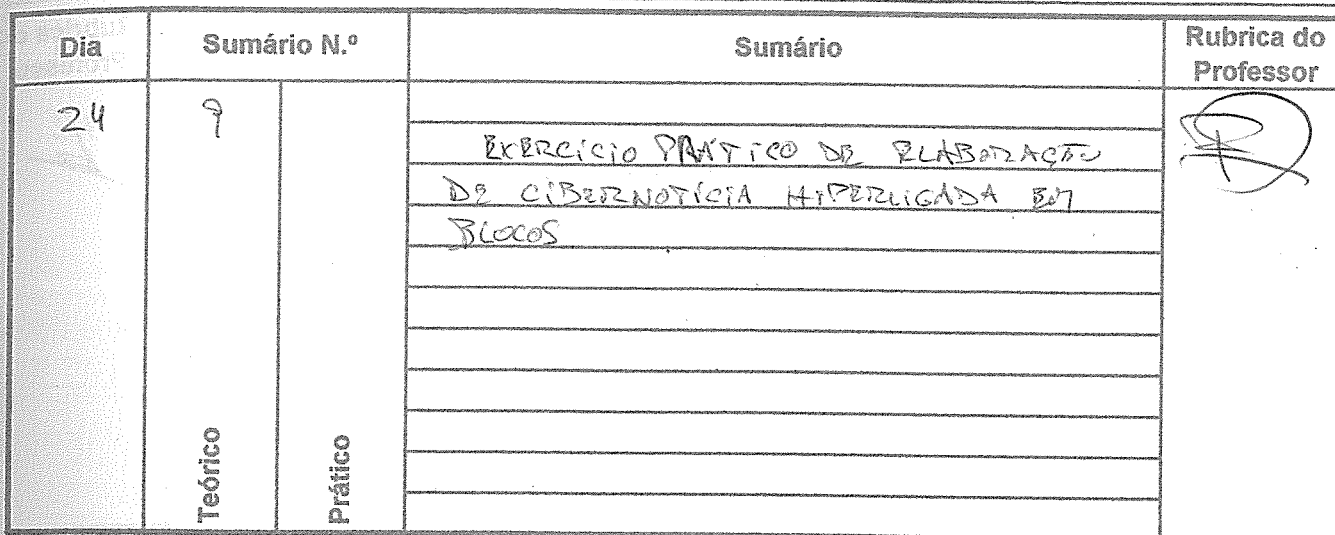 Dia
Sumário N.º
Sumário
Rubrica do
Professor
24
9
EXERCÍCIO PRÁTICO DE ELABORAÇÃO
DE CIBERNOTÍCIA HIPERLIGADA EM
BLOCOS
Teórico
Prático